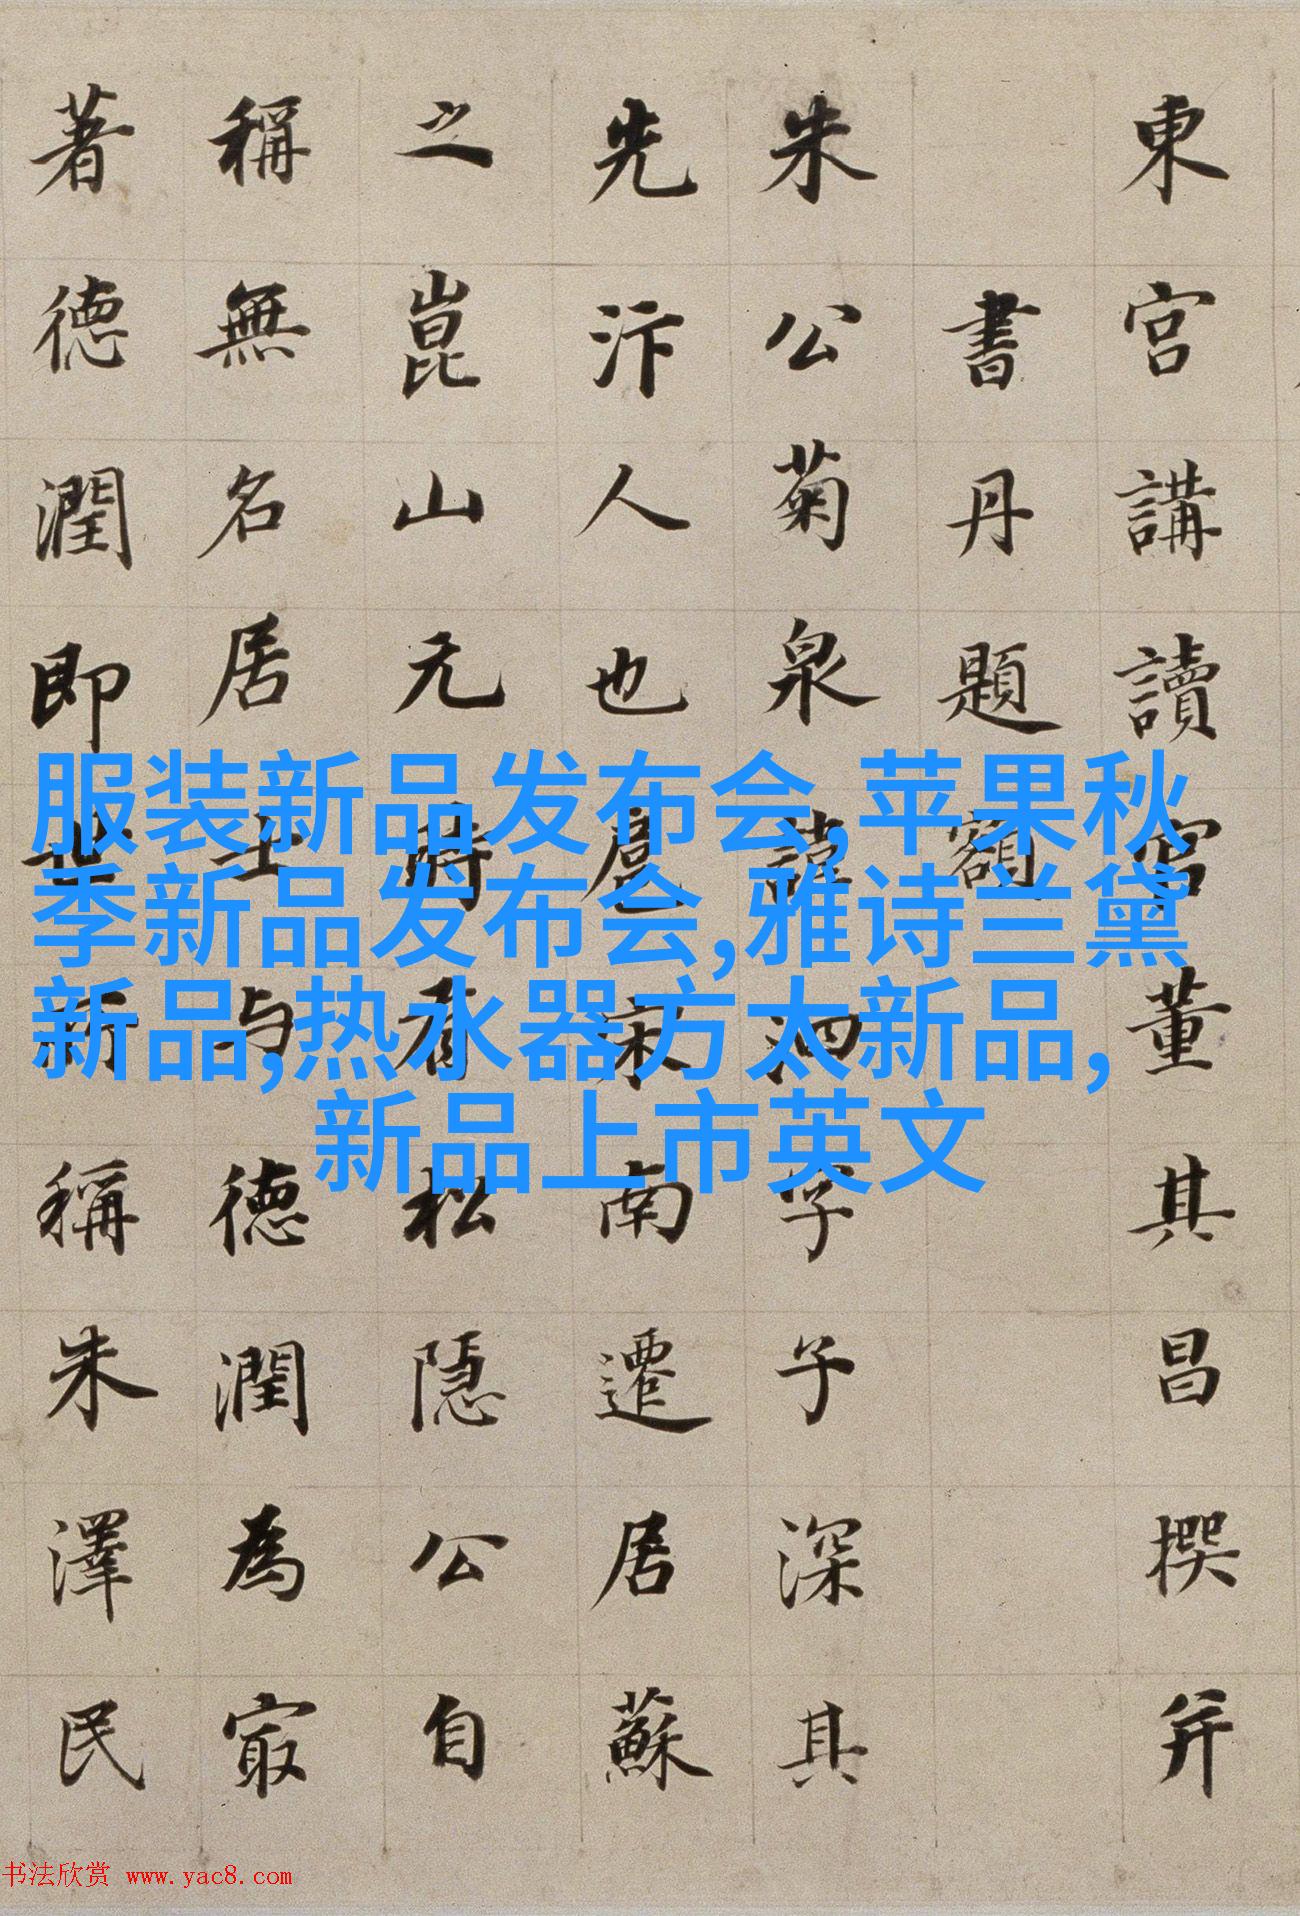 東宮講讀官董其昌撰并
書丹題額
朱公菊泉諱泗字子深其
先汴人也扈宋南遷居蘇
之崑山元時有松隱公自
稱無名居士与德潤為㝡
著德潤即世所稱朱澤民
服装新品发布会,苹果秋
季新品发布会,雅诗兰黛
新品,热水器方太新品,
新品上市英文
书法欣赏 www.yac8.com